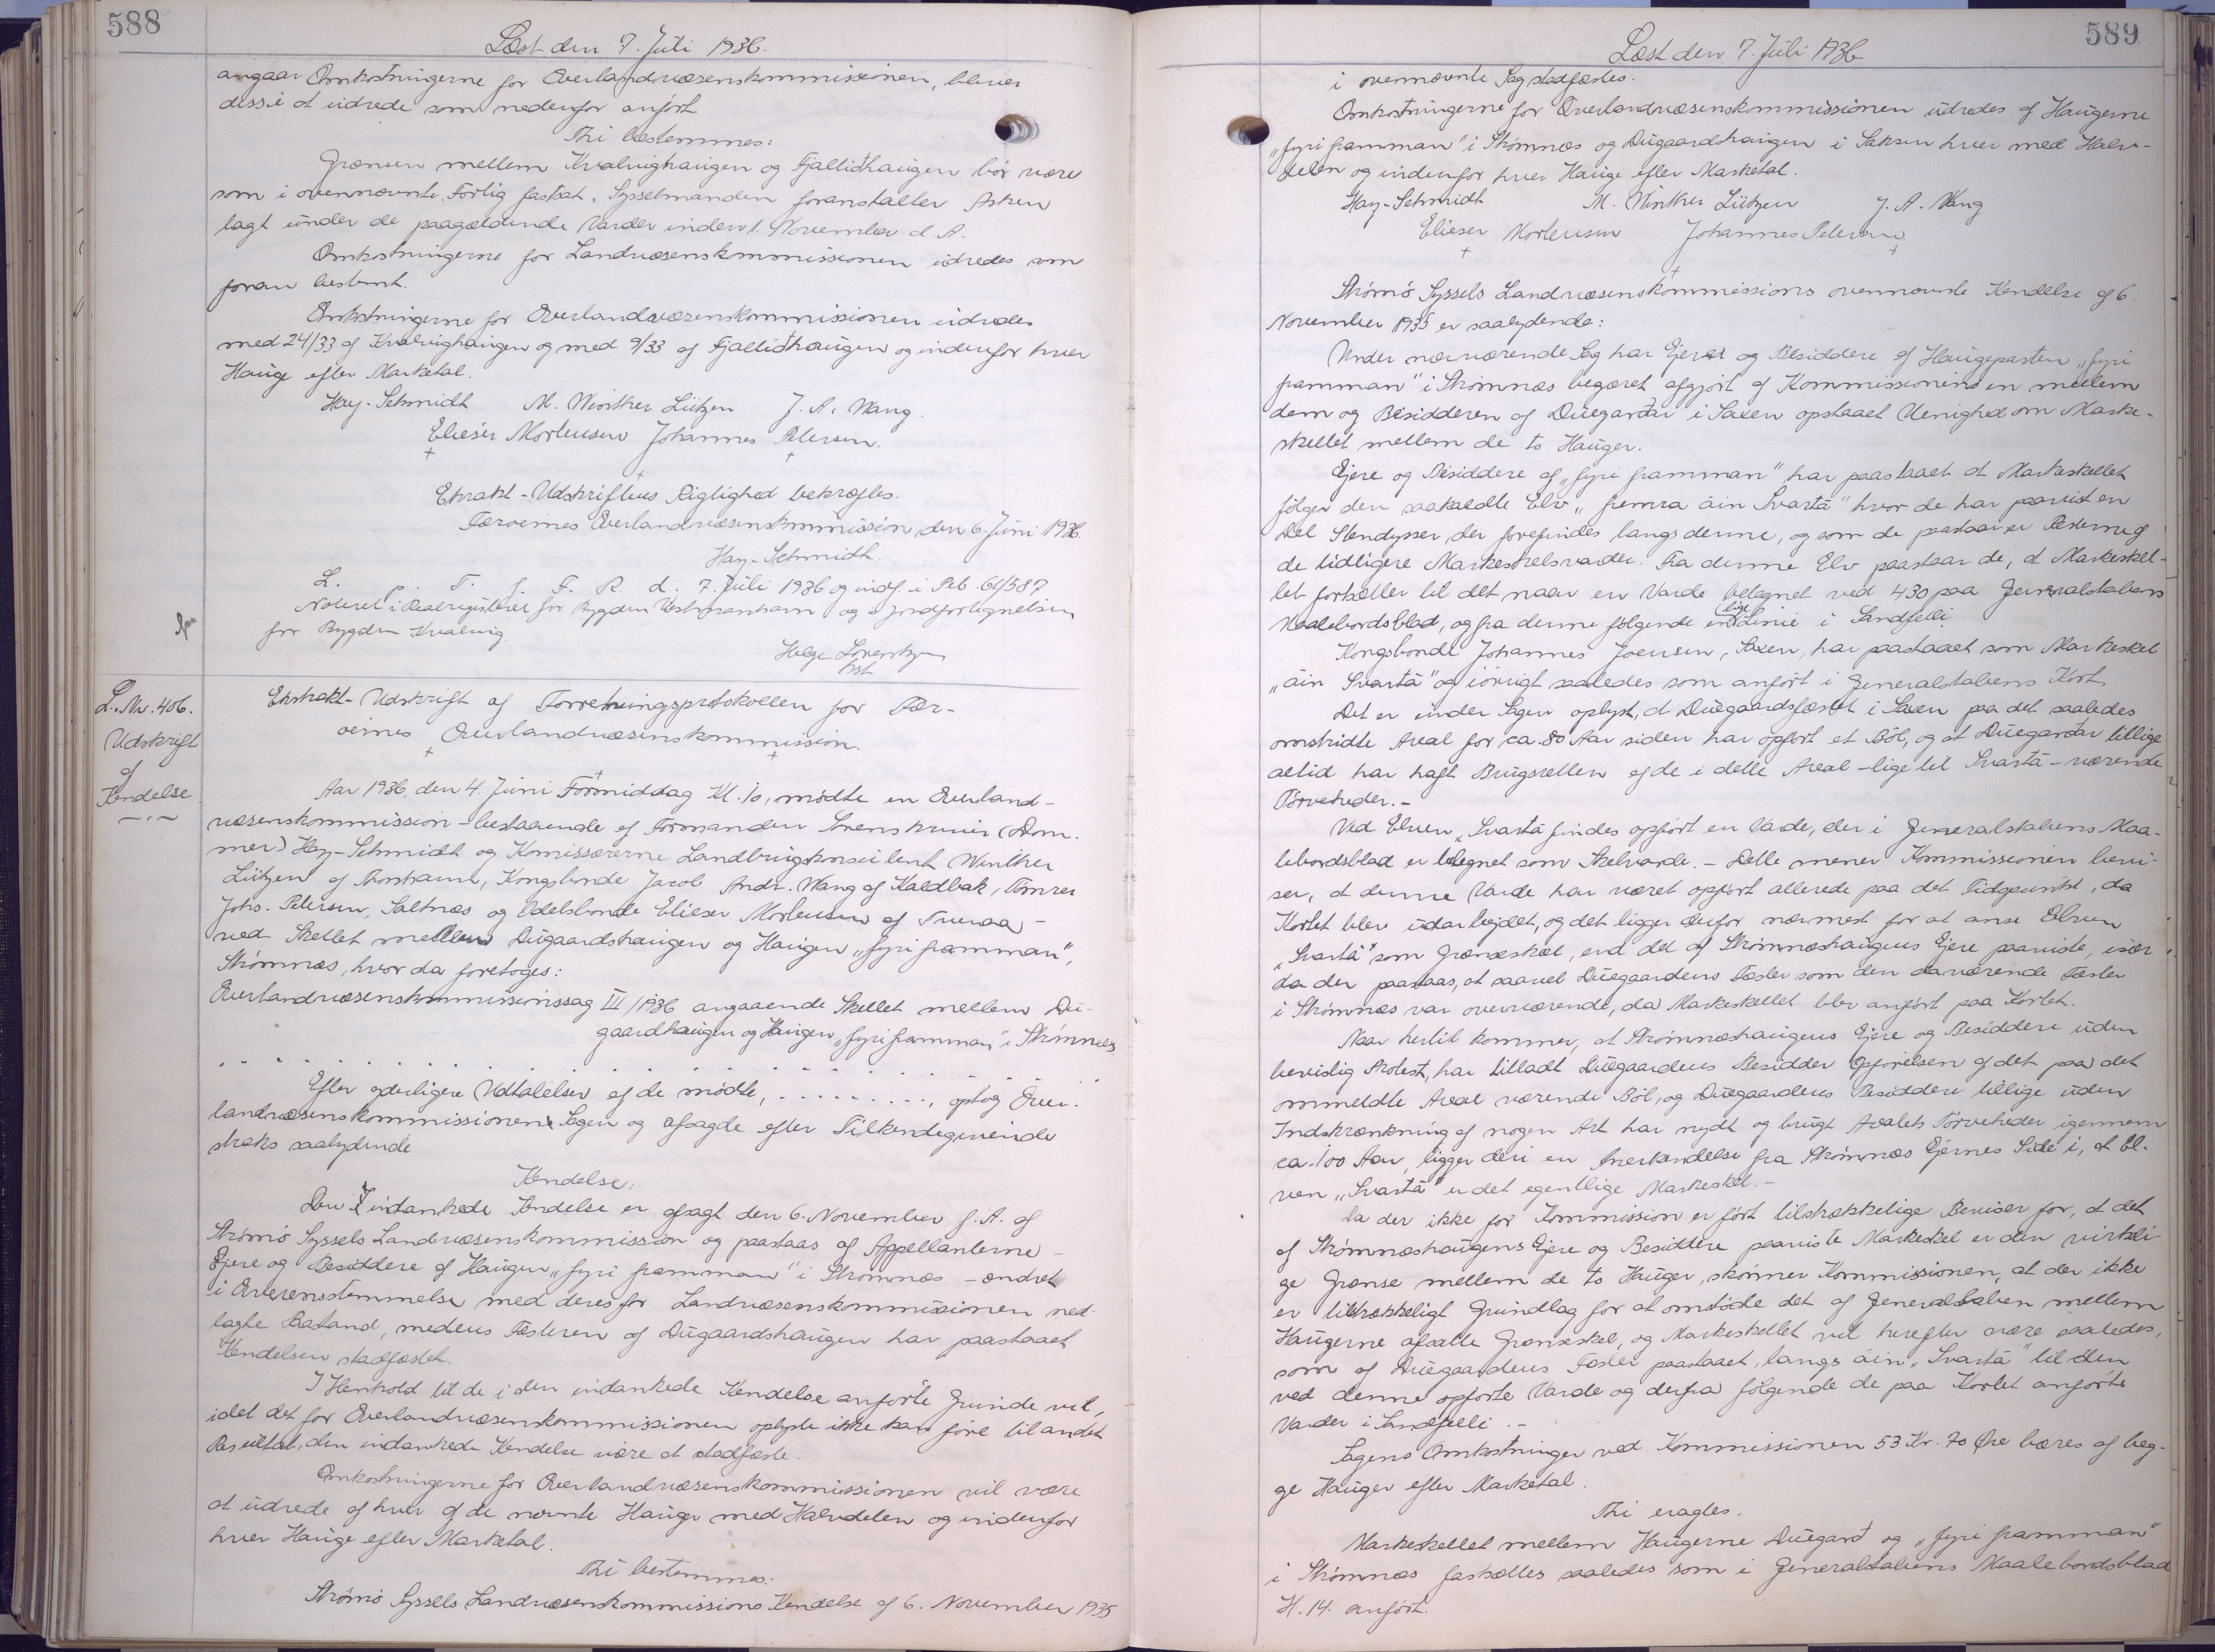 588
Læst den 7. Juli 1936.
angaar Omkostningerne for Overlandvæsenskommissionen, bliver
disse at udrede som nedenfor anført
Thi bestemmes:
Grænsen mellem Kvalvighaugen og Fjallidhaugen bör være
som i ovennævnte Forlig fastsat. Sysselmanden foranstalter Asken
lagt under de paagældende Varder inden 1. November d. A.
Omkostningerne for Landvæsenskommissionen udredes som
foran bestemt.
Omkostningerne for Overlandvæsenskommissionen udredes
med 24/33 af Kvalvighaugen og med 9/33 af Fjallidhaugen og indenfor hver
Hauge efter Marketal.
Hay-Schmidt M. Winther Lützen J. A. Wang.
Elieser Mortensen Johannes Petersen.
Ekstrakt-Udskriftens Rigtighed bekræftes.
Færøernes Overlandvæsenskommission, den 6. Juni 1936.
Hay-Schmidt.
L. p. T. f. F. R. d. 7. Juli 1936 og indf. i Peb. 61/587
Noteret i Realregisteret for Bygden Vestmanhavn og i Jordfortegnelsen
for Bygden Kvalvig.
Helge
hst
L. Nr. 406.
Udskrift
af
Kendelse
Ekstrakt-Udskrift af Forretningsprotokollen for Fær-
øernes Overlandvæsenskommission.
Aar 1936, den 4. Juni Formiddag Kl. 10, mødte en Overland-
væsenskommission - bestaaende af Formanden Sorenskriver (Dom-
mer) Hay-Schmidt og Komissærerne Landbrugskonsulent Winther
Lützen af Thorshavn, Kongsbonde Jacob Andr. Wang af Kaldbak, Tømrer
Johs. Petersen, Saltnæs og Odelsbonde Elieser Mortensen af Tveraa -
ved Skellet mellem Dúgaardshaugen og Haugen "fyri framman",
Strømnæs, hvor da foretoges:
Overlandvæsenskommissionssag III/1936 angaaende Skellet mellem Dú-
gaardhaugen og Haugen "fyri framman" i Strömnæs
Efter yderligere Udtalelser af de mödte, . . . . . . . . . ., optog Over-
landvæsenskommissionen Sagen og afsagde efter Tilkendegivende
straks saalydende
Kendelse:
Den indankede Kendelse er afsagt den 6. November f. A. af
Strömö Syssels Landvæsenskommission og paastaas af Appellanterne -
Ejere og Besiddere af Haugen "fyri framman" i Strömnæs - ændret
i Overensstemmelse med deres for Landvæsenskommissionen ned-
lagte Pastand, medens Fæsteren af Dúgaardshaugen har paastaaet
Kendelsen stadfæstet.
I Henhold til de i den indankede Kendelse anførte Grunde vil,
idet det for Overlandvæsenskommissionen oplyste ikke kan före til andet
Resultat, den indankede Kendelse være at stadfæste.
Omkostningerne for Overlandvæsenskommissionen vil være
at udrede af hver af de nævnte Hauger med Halvdelen og indenfor
hver Hauge efter Marketal.
Thi bestemmes:
Strömö Syssels Landvæsenskommissions Kendelse af 6. November 1935
589
Læst den 7. Juli 1936
i ovennævnte Sag stadfæstes.
Omkostningerne for Overlandvæsenskommissionen udredes af Haugerne
"fyri framman" i Strömnæs og Dúgaardshaugen i Saksen hver med Halv-
delen og indenfor hver Hauge efter Marketal.
Hay-Schmidt M. Winther Lützen J. A. Wang
Elieser Mortensen Johannes Petersen
Strömö Syssels Landvæsenskommissions ovennævnte Kendelse af 6.
November 1935 er saalydende:
Under nærværende Sag har Ejere og Besiddere af Haugeparten "fyri
framman" i Strömnæs begæret afgjort af Kommissionen en mellem
dem og Besidderen af Dúegardar i Saxen opstaaet Uenighed om Marke-
skellet mellem de to Hauger.
Ejere og Besiddere af "fyri framman" har paastaaet at Markeskellet
følger den saakaldte Elv "fremra áin Svartá" hvor de har paavist en
Del Stendysser, der forefindes langs denne, og som de paastaar er Resterne af
de tidligere Markeskelsvarder. Fra denne Elv paastaar de, at Markeskel-
let fortsætter til det naar en Varde betegnet ved 430 paa Generalstabens
Maalebordsblad, og fra denne følgende en lige Linie i Sandfelli.
Kongsbonde Johannes Joensen, Saxen, har paastaaet som Markeskel
"áin Svartá" og iövrigt saaledes som anført i Generalstabens Kort.
Det er under Sagen oplyst, at Dúegaardsfæstet i Saxen paa det saaledes
omstridte Areal for ca. 80 Aar siden har opført et Ból, og at Dúegardar tillige
altid har haft Brugsretten af de i dette Areal - lige til Svartá - værende
Törveheder. -
Ved Elven "Svartá" findes opfört en Varde, der i Generalstabens Maa-
lebordsblad er betegnet som Skelvarde. - Dette mener Kommissionen bevi-
ser, at denne Varde har været opfört allerede paa det Tidspunkt, da
Kortet blev udarbejdet, og det ligger derfor nærmest for at anse Elven
"Svartá" som Grænseskel, end det af Strömnæshaugens Ejere paaviste, især
da der paastaas, at saavel Dúegaardens Fæster som den daværende Fæster
i Strömnæs var overværende, da Markeskellet blev anført paa Kortet.
Naar hertil kommer, at Strömnæshaugens Ejere og Besiddere uden
bevislig Protest, har tilladt Dúegaardens Besidder Opførelsen af det paa det
ommeldte Areal værende Ból, og Dúegaardens Besiddere tillige uden
Indskrænkning af nogen Art har nydt og brugt Arealets Törveheder igennem
ca. 100 Aar, ligger deri en Anerkendelse fra Strömnæs Ejernes Side i, at El-
ven "Svartá" er det egentlige Markeskel. -
Da der ikke for Kommission er fört tilstrækkelige Beviser for, at det
af Strömnæshaugens Ejere og Besiddere paaviste Markeskel er den virkeli-
ge Grænse mellem de to Hauger, skönner Kommissionen, at der ikke
er tilstrækkeligt Grundlag for at omstöde det af Generalstaben mellem
Haugerne afsatte Grænseskel, og Markeskellet vil herefter være saaledes,
som af Dúegaardens Fæster paastaaet, langs áin "Svartá" til den
ved denne opførte Varde og derfra følgende de paa Kortet anførte
Varder i Sandfelli. -
Sagens Omkostninger ved Kommissionen 53 Kr. 70 Øre bæres af beg-
ge Hauger efter Marketal.
Thi eragtes.
Markeskellet mellem Haugerne Dúegard og "fyri framman"
i Strömnæs fastsættes saaledes som i Generalstabens Maalebordsblad
H. 14. anført.